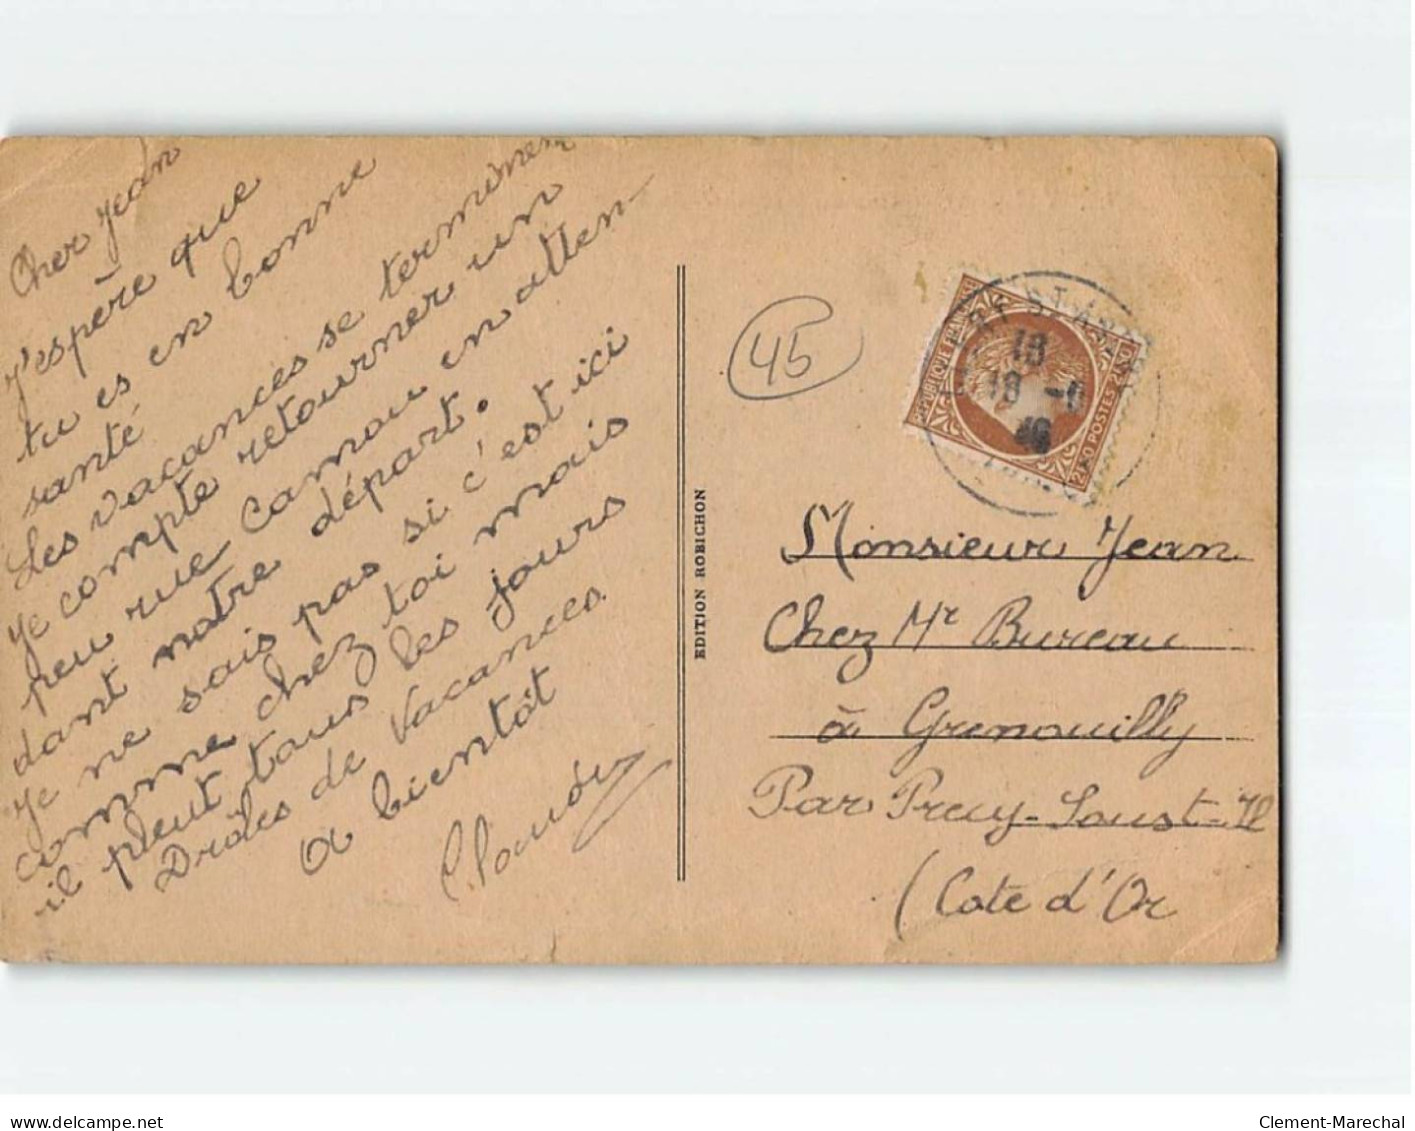 Cher Jean
J'espère que
tu es en bonne
santé
Les vacances se terminent
Je compte retourner un
peu rue Camou en atten-
dant notre départ.
Je ne sais pas si c'est ici
comme chez toi mais
il pleut tous les jours
Drôles de Vacances.
A bientôt
Claude
EDITION ROBICHON
45
REPUBLIQUE FRANÇAISE
2F50 POSTES 2F50
18
18 -
46
Monsieur Jean
Chez Mr Bureau
à Grenouilly
Par Précy-Soust-Il
(Cote d'Or
delcampe.net
Clement-Marechal